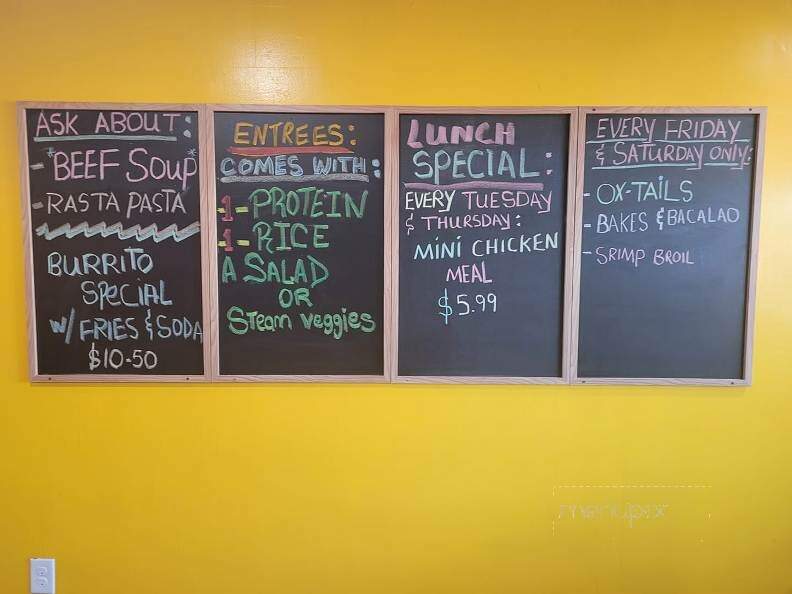 ASK ABOUT:
- *BEEF SOUP*
- RASTA PASTA
BURRITO
SPECIAL
W/ FRIES & SODA
$10-50
ENTREES:
COMES WITH:
-1-PROTEIN
-1-RICE
A SALAD
OR
STEAM VEGGIES
LUNCH
SPECIAL:
EVERY TUESDAY
& THURSDAY:
MINI CHICKEN
MEAL
$5.99
EVERY FRIDAY
& SATURDAY ONLY:
- OX-TAILS
- BAKES & BACALAO
- SRIMP BROIL
menupix